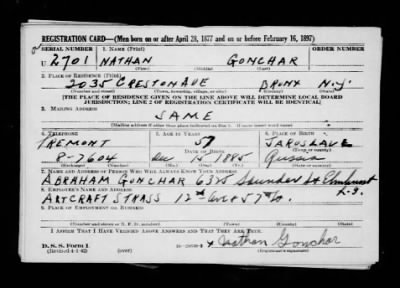 REGISTRATION CARD—(Men born on or after April 28, 1877 and on or before February 16, 1897)
SERIAL NUMBER 1. NAME (Print) ORDER NUMBER
U 2701 NATHAN GONCHAR
2. PLACE OF RESIDENCE (Print)
2035 CRESTON AVE BRONX N.Y.
(Number and street) (Town, township, village, or city) (County) (State)
[THE PLACE OF RESIDENCE GIVEN ON THE LINE ABOVE WILL DETERMINE LOCAL BOARD
JURISDICTION; LINE 2 OF REGISTRATION CERTIFICATE WILL BE IDENTICAL]
3. MAILING ADDRESS
SAME
[Mailing address if other than place indicated on line 2. If same insert word same]
4. TELEPHONE 5. AGE IN YEARS 6. PLACE OF BIRTH
TREMONT 57 JAROSLAVE
DATE OF BIRTH
8-7604 1885 Russia
(Exchange) (Number) (Mo.) (Day) (Yr.) (State or country)
7. NAME AND ADDRESS OF PERSON WHO WILL ALWAYS KNOW YOUR ADDRESS
ABRAHAM GONCHAR Saunder St Elmhurst
8. EMPLOYER'S NAME AND ADDRESS L.I.
ARTCRAFT STRASS 12
9. PLACE OF EMPLOYMENT OR BUSINESS
(Number and street or R. F. D. number) (Town) (County) (State)
I AFFIRM THAT I HAVE VERIFIED ABOVE ANSWERS AND THAT THEY ARE TRUE.
D. S. S. Form 1 x Nathan Gonchar
(over)